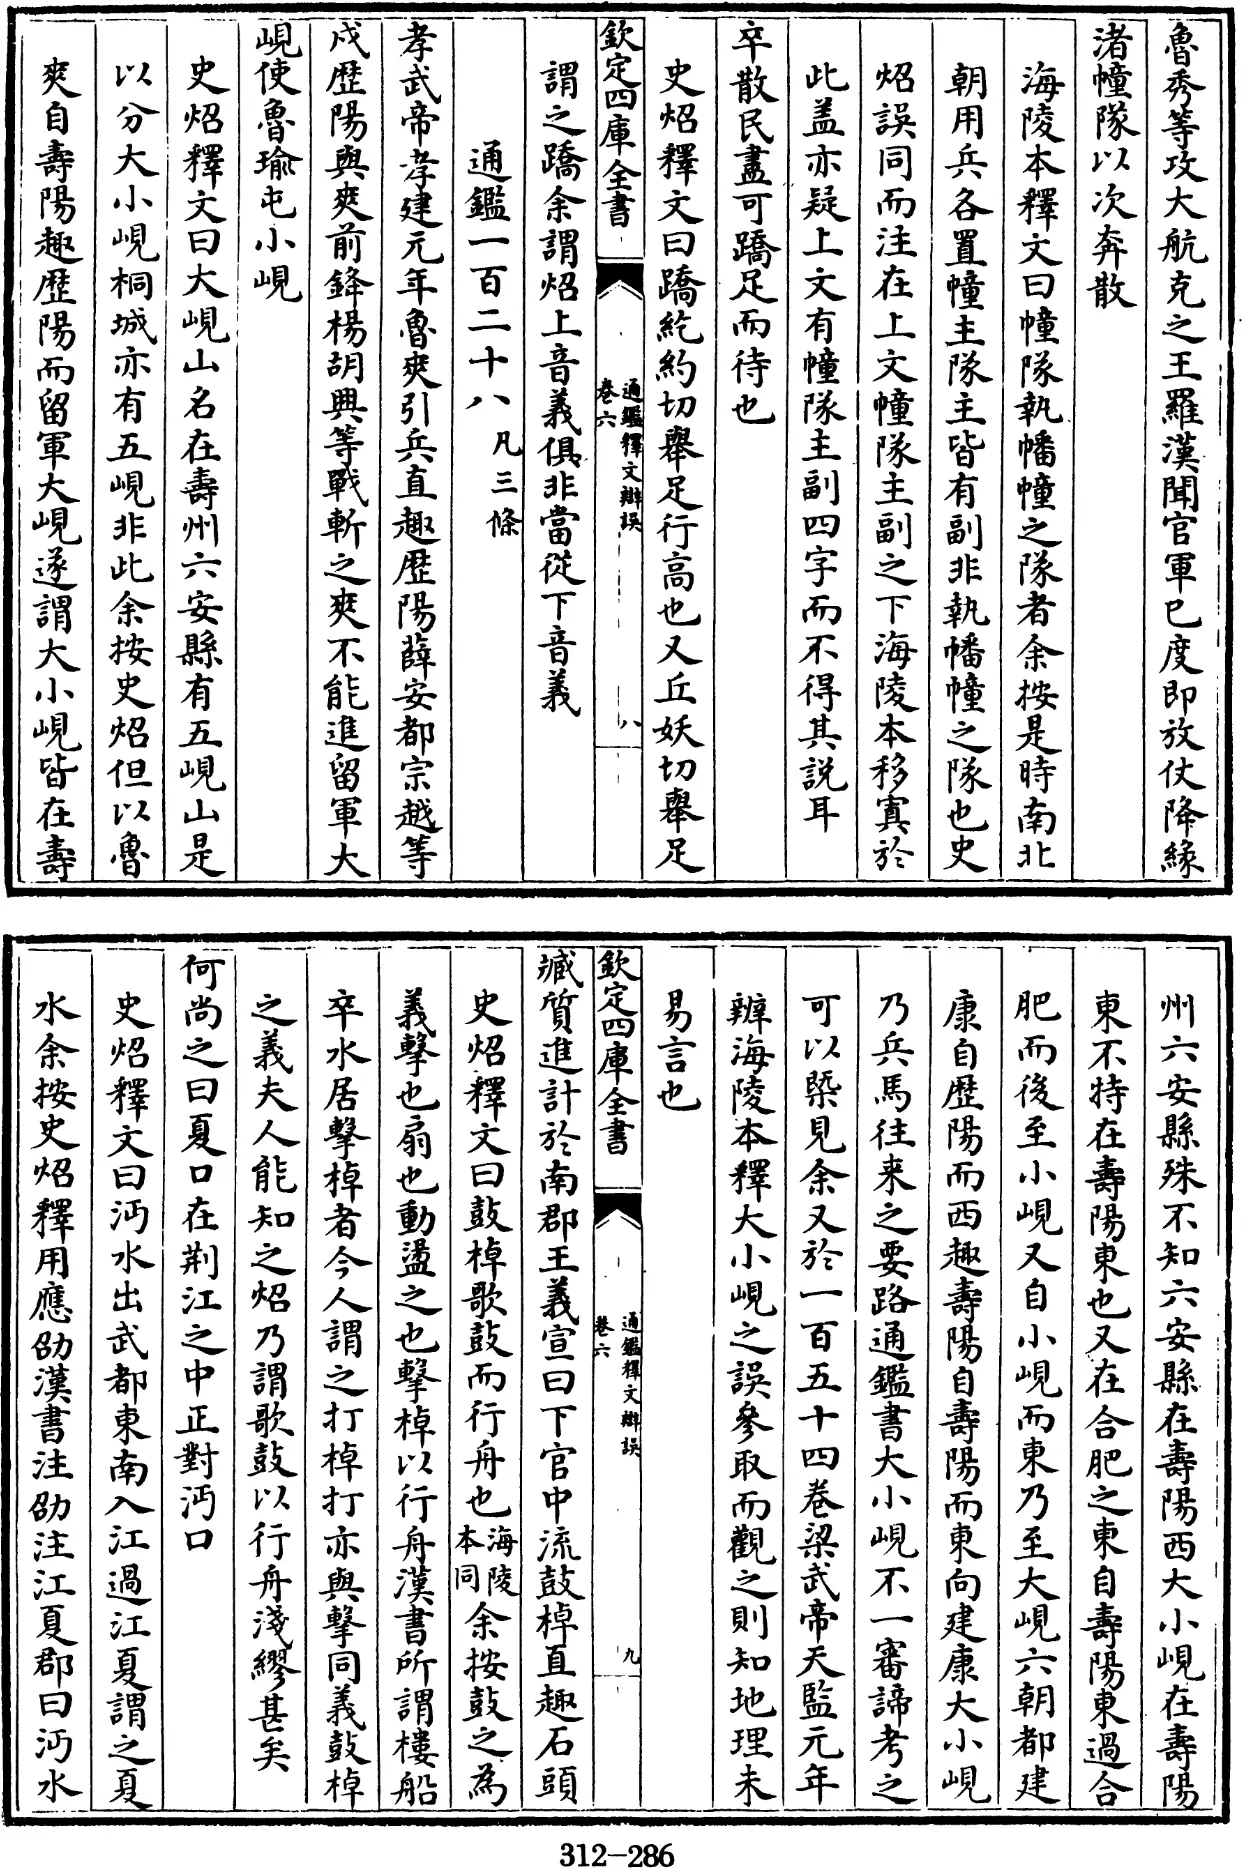 魯秀等攻大航克之王羅漢聞官軍已度即放仗降緣
渚幢隊以次奔散
海陵本釋文曰幢隊執幡幢之隊者余按是時南北
朝用兵各置幢主隊主皆有副非執幡幢之隊也史
炤誤同而注在上文幢隊主副之下海陵本移寘於
此盖亦疑上文有幢隊主副四字而不得其説耳
卒散民盡可蹻足而待也
史炤釋文曰蹻紇約切舉足行高也又丘妖切舉足
欽定四庫全書
通鑑釋文辯誤
卷六
八
謂之蹻余謂炤上音義俱非當從下音義
通鑑一百二十八 凡三條
孝武帝孝建元年魯爽引兵直趣歴陽薛安都宗越等
戍歴陽與爽前鋒楊胡興等戰斬之爽不能進留軍大
峴使魯瑜屯小峴
史炤釋文曰大峴山名在壽州六安縣有五峴山是
以分大小峴桐城亦有五峴非此余按史炤但以魯
爽自壽陽趣歴陽而留軍大峴遂謂大小峴皆在壽
州六安縣殊不知六安縣在壽陽西大小峴在壽陽
東不特在壽陽東也又在合肥之東自壽陽東過合
肥而後至小峴又自小峴而東乃至大峴六朝都建
康自歴陽而西趣壽陽自壽陽而東向建康大小峴
乃兵馬往来之要路通鑑書大小峴不一審諦考之
可以槩見余又於一百五十四卷梁武帝天監元年
辨海陵本釋大小峴之誤參取而觀之則知地理未
易言也
欽定四庫全書
通鑑釋文辯誤
卷六
九
臧質進計於南郡王義宣曰下官中流鼓棹直趣石頭
史炤釋文曰鼓棹歌鼓而行舟也海陵本同余按鼓之為
義擊也扇也動盪之也擊棹以行舟漢書所謂樓船
卒水居擊棹者今人謂之打棹打亦與擊同義鼓棹
之義夫人能知之炤乃謂歌鼓以行舟淺繆甚矣
何尚之曰夏口在荆江之中正對沔口
史炤釋文曰沔水出武都東南入江過江夏謂之夏
水余按史炤釋用應劭漢書注劭注江夏郡曰沔水
312-286